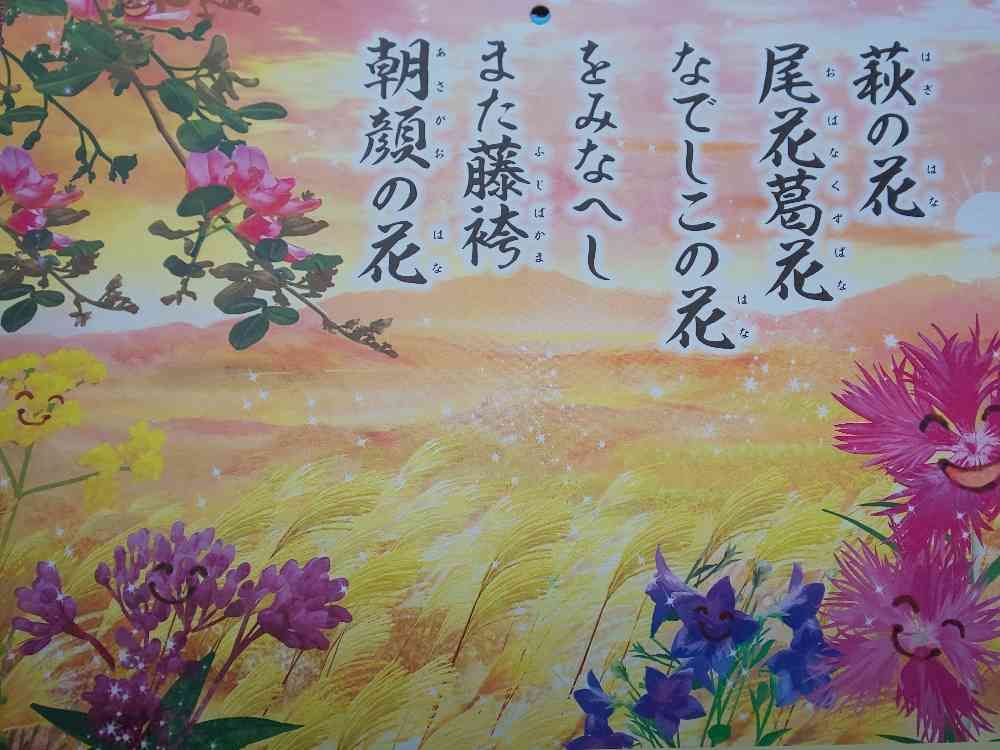 萩の花
尾花葛花
なでしこの花
をみなへし
また藤袴
朝顔の花
はぎ はな
おばなくずばな
はな
ふじばかま
あさがお はな